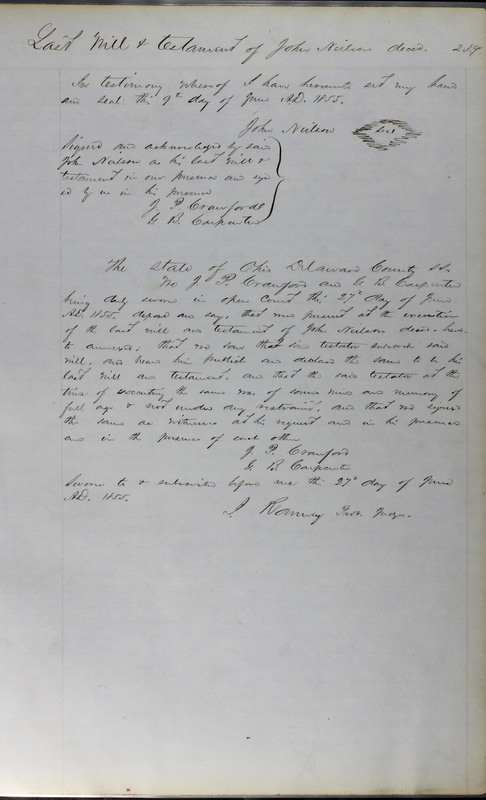 Last Will & testament of John Neilson decd. 259
In testimony whereof I have hereunto set my hand
and seal this 9th day of June A.D. 1855.
John Neilson Seal
Signed and acknowledged by said
John Neilson as his last will &
testament in our presence and sign
ed by us in his presence
J. P. Crawford
G. B. Carpenter
The State of Ohio Delaware County SS.
We J. P. Crawford and G. B. Carpenter
being duly sworn in open Court this 27th day of June
A.D. 1855. depose and say, that we were present at the execution
of the last will and testament of John Neilson decd. here-
to annexed; that we saw that said testator subscribe said
will, and heard him publish and declare the same to be his
last will and testament, and that the said testator at the
time of executing the same was of sound mind and memory of
full age & not under any restraint, and that we signed
the same as witnesses at his request and in his presence
and in the presence of each other
J. P. Crawford
G. B. Carpenter
Sworn to & subscribed before me this 27th day of June
A.D. 1855.
J. Ranney Prob. Judge.